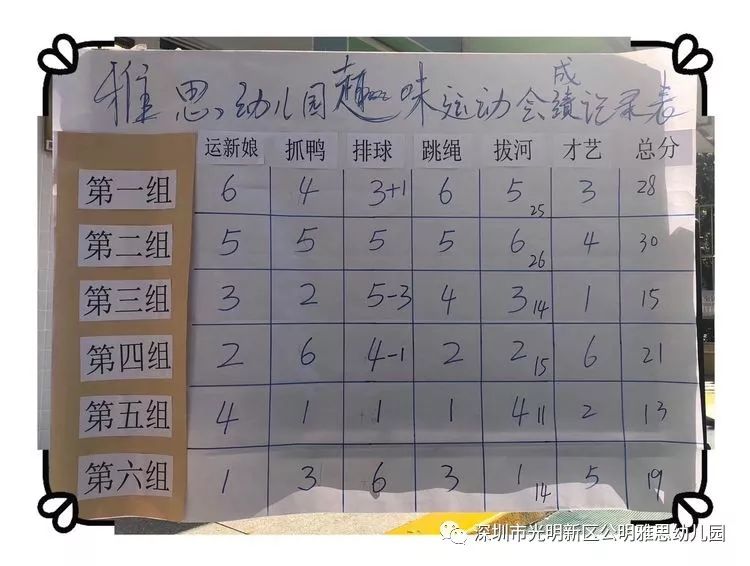 雅思幼儿园趣味运动会成绩记录表
运新娘 抓鸭 排球 跳绳 拔河 才艺 总分
第一组 6 4 3+1 6 5 25 3 28
第二组 5 5 5 5 6 26 4 30
第三组 3 2 5-3 4 3 14 1 15
第四组 2 6 4-1 2 2 15 6 21
第五组 4 1 1 1 4 11 2 13
第六组 1 3 6 3 1 14 5 19
深圳市光明新区公明雅思幼儿园